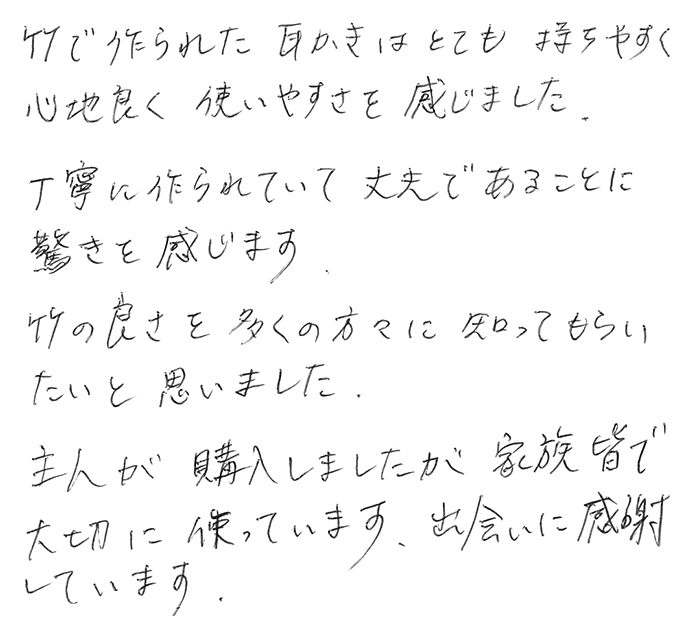 竹で作られた 耳かきは とても 持ちやすく
心地良く 使いやすさを 感じました.
丁寧に作られていて 丈夫で あることに
驚きを 感じます.
竹の良さを 多くの方々に 知ってもらい
たいと 思いました.
主人が 購入しましたが 家族 皆で
大切に 使っています、出会いに 感謝
しています.